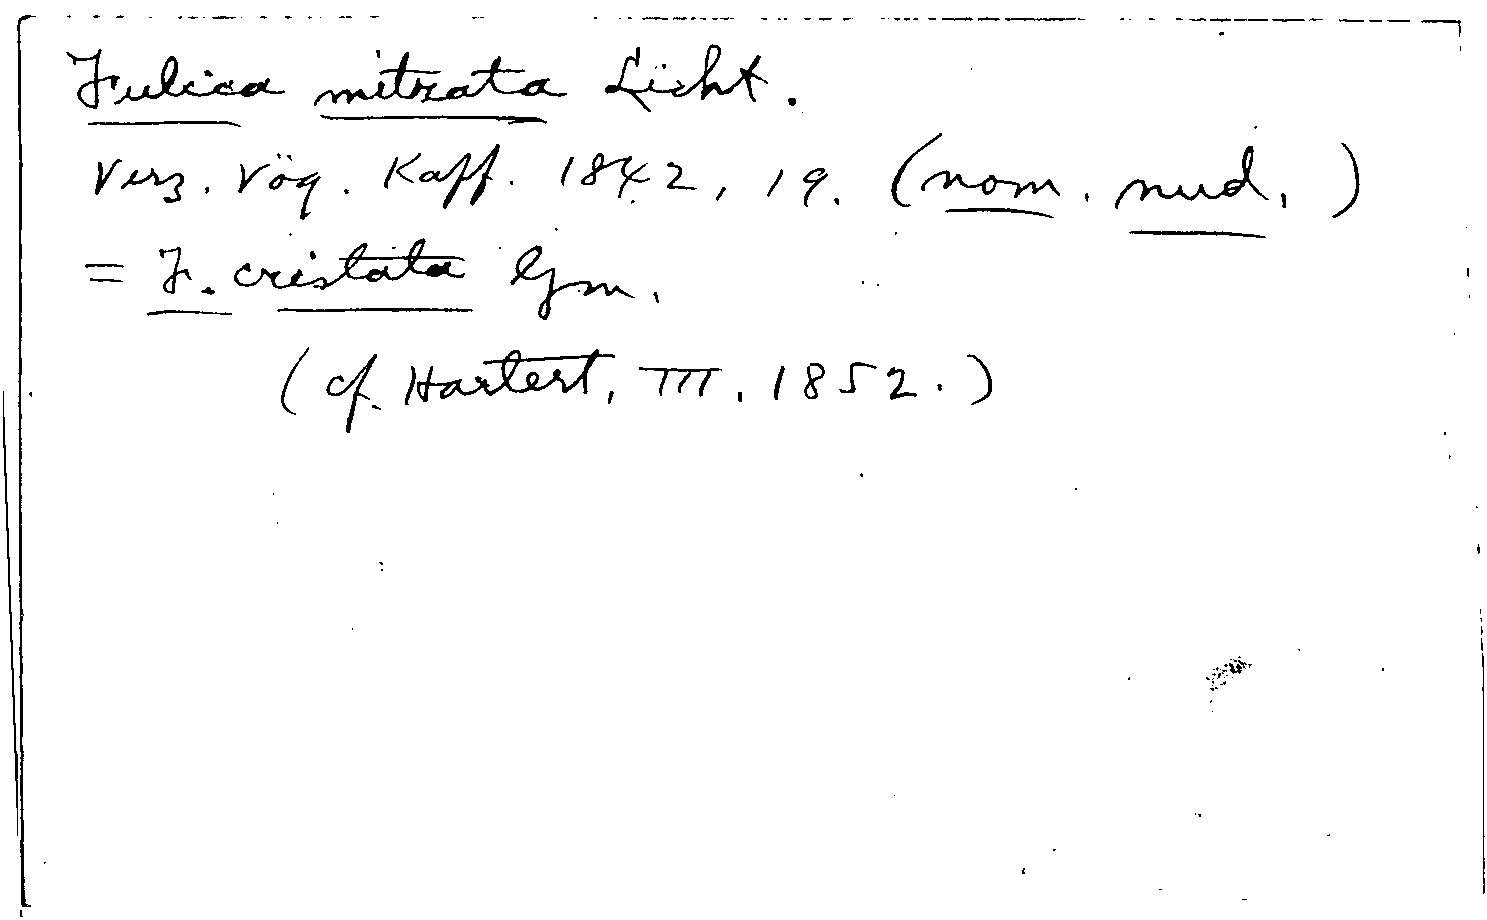 Fulica mitrata Licht.
Verz. Vög. Kaff. 1842, 19. (nom. nud.)
= F. cristata Gm.
(cf. Hartert, III. 1852.)